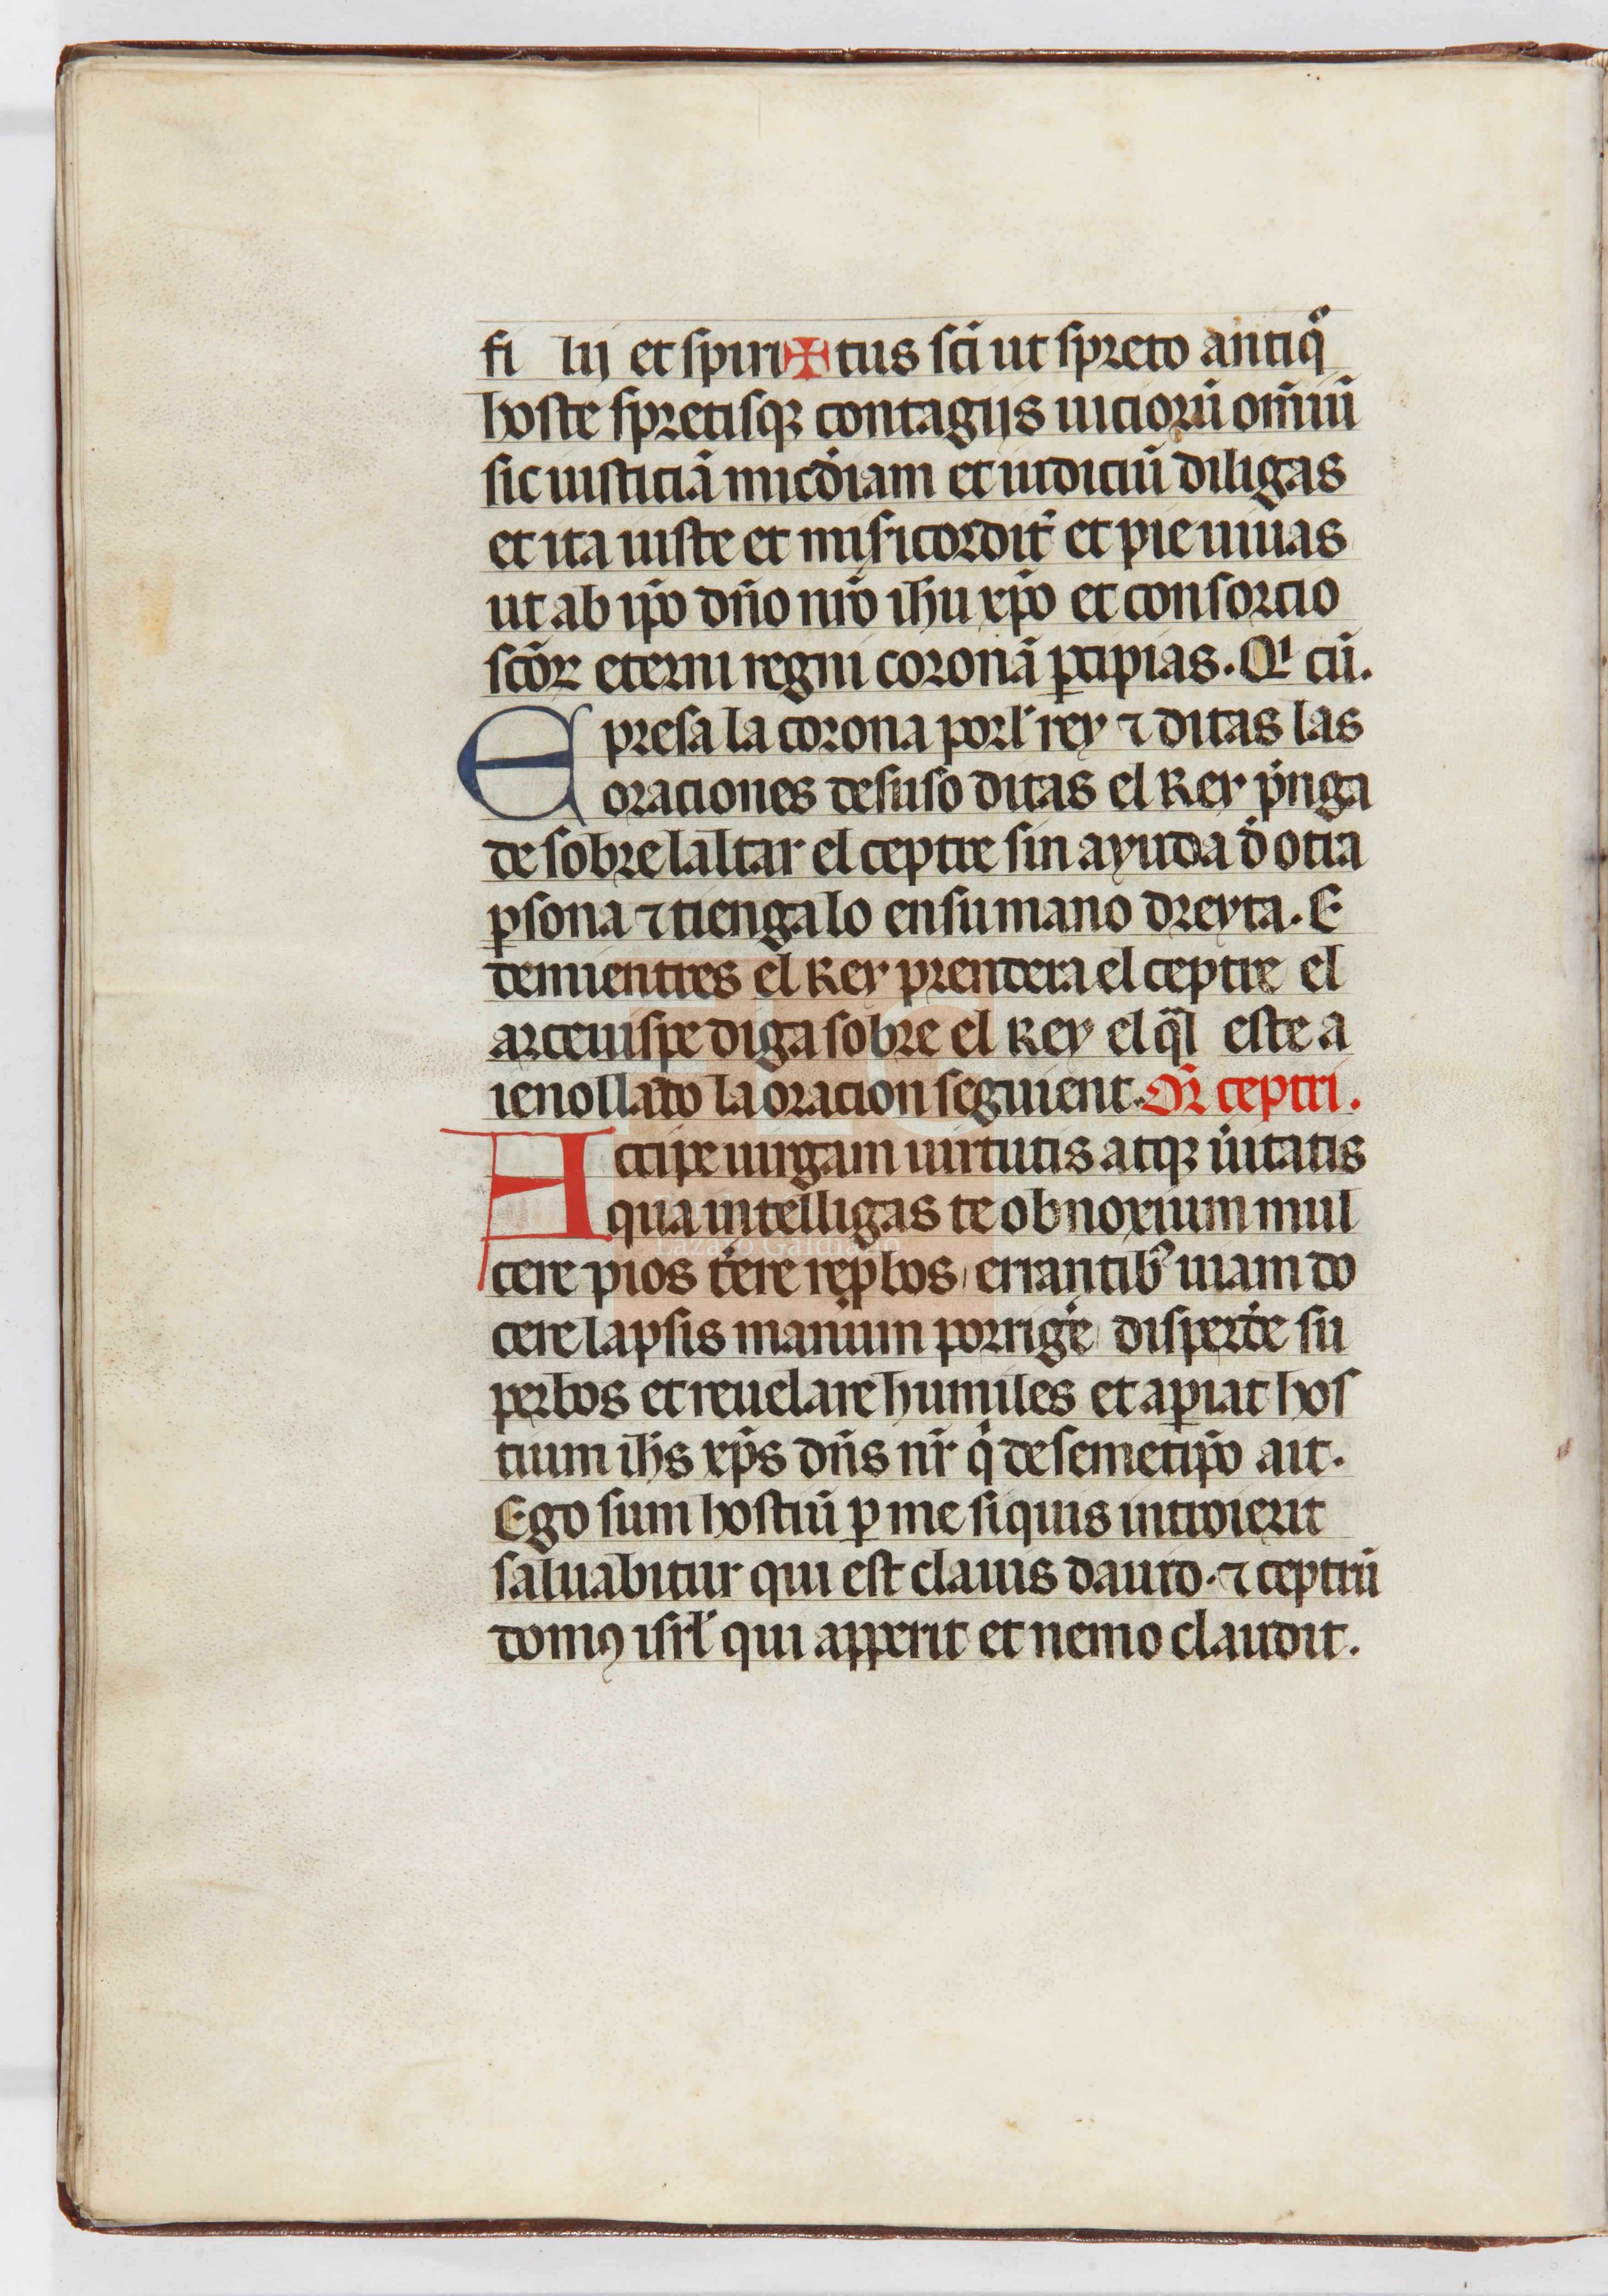 fi lij et spiri✠tus sc̄i ut spreto antiqͦ
hoste spretisqꝫ contagijs uicioꝝ ū om̄iū
sic iusticiā mic̄diam et iudiciū diligas
et ita iuste et misicordit̾ et pie uiuas
ut ab ip̄o dn̄o nr̄o ih̄u xp̄o et consorcio
sc̄oꝝ eterni regni coronā ꝑcipias. Qi cū.
E presa la corona porl rey ⁊ ditas las
oraciones desuso ditas el Rey p̾nga
de sobre laltar el ceptre sin ayuda d̾ otra
ꝑsona ⁊ tienga lo en su mano dreyta. E
demientres el Rey prendera el ceptre el
arceuispe diga sobre el Rey el q̄l este a
ienollado la oracion seguient. Or̄ ceptri.
Accipe uirgam uirtutis atqꝫ ūitatis
qua intelligas te obnoxium mul
cere pios t̾rere rep̄bos, errantibꝰ uiam do
cere lapsis manum porrig̾e disperd̾e su
perbos et reuelare humiles et aꝑiat hos
tium ih̄s xp̄s dn̄s nr̄ qͥ de semetip̄o ait.
Ego sum hostiū ꝑ me si quis introierit
saluabitur qui est clauis dauid. ⁊ ceptrū
domꝯ isrl̄ qui apperit et nemo claudit.
Lázaro Galdiano